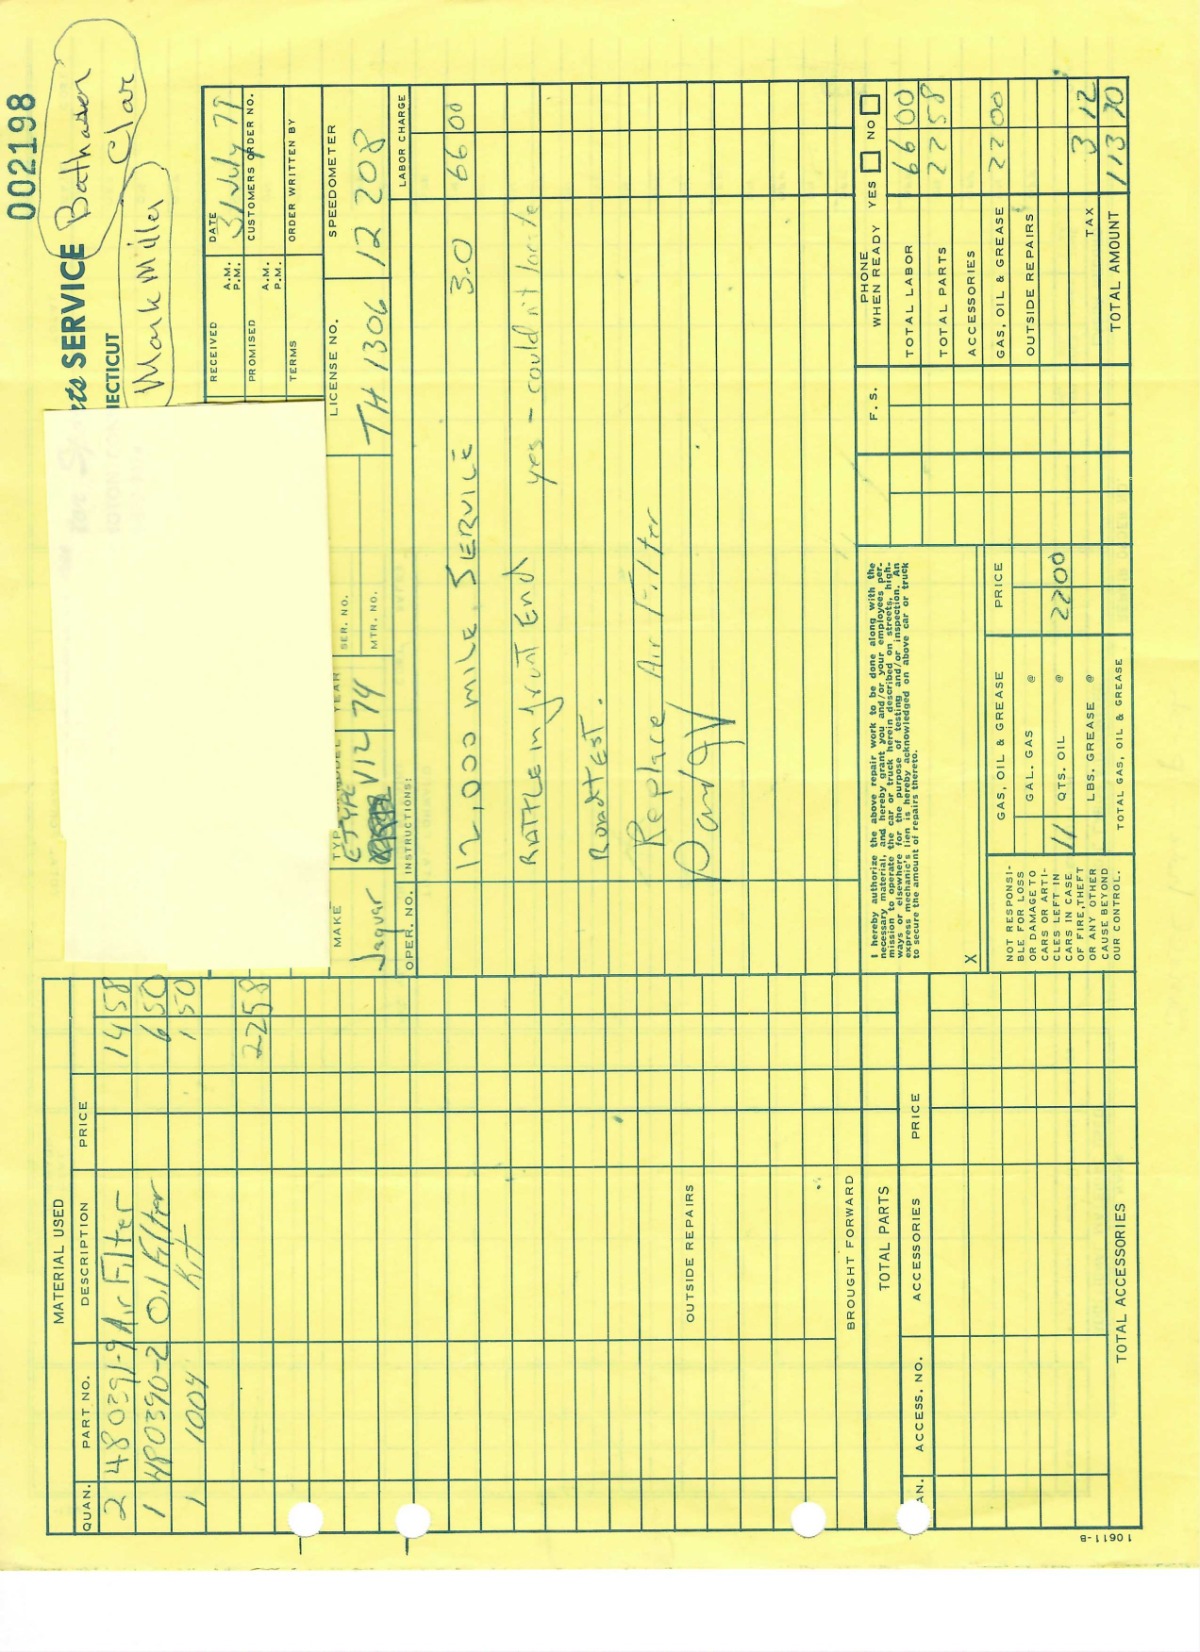 002198
SERVICE Bathasen
ECTICUT Clar
Mark Miller
MATERIAL USED
QUAN. PART NO. DESCRIPTION PRICE
2 480391-9 Air Filter 14 58
1 480390-2 Oil Filter 6 50
1 1004 Kit 1 50
22 58
OUTSIDE REPAIRS
BROUGHT FORWARD
TOTAL PARTS
AN. ACCESS. NO. ACCESSORIES PRICE
TOTAL ACCESSORIES
10611-B
RECEIVED A.M. P.M. DATE 31 July 77
PROMISED A.M. P.M. CUSTOMERS ORDER NO.
TERMS ORDER WRITTEN BY
MAKE YEAR SER. NO. LICENSE NO. SPEEDOMETER
MTR. NO.
Jaguar E-TYPE V12 74 TH 1306 12 208
OPER. NO. INSTRUCTIONS: LABOR CHARGE
12,000 mile SERVICE 3.0 66 00
RATTLE in front End yes - could not locate
ROADTEST.
Replace Air Filter
I hereby authorize the above repair work to be done along with the
necessary material, and hereby grant you and/or your employees per-
mission to operate the car or truck herein described on streets, high-
ways or elsewhere for the purpose of testing and/or inspection. An
express mechanic's lien is hereby acknowledged on above car or truck
to secure the amount of repairs thereto.
X
NOT RESPONSI-
BLE FOR LOSS
OR DAMAGE TO
CARS OR ARTI-
CLES LEFT IN
CARS IN CASE
OF FIRE, THEFT
OR ANY OTHER
CAUSE BEYOND
OUR CONTROL.
GAS, OIL & GREASE PRICE
GAL. GAS @
11 QTS. OIL @ 22 00
LBS. GREASE @
TOTAL GAS, OIL & GREASE
F. S.
PHONE WHEN READY YES NO
TOTAL LABOR 66 00
TOTAL PARTS 22 58
ACCESSORIES
GAS, OIL & GREASE 22 00
OUTSIDE REPAIRS
TAX 3 12
TOTAL AMOUNT 113 70